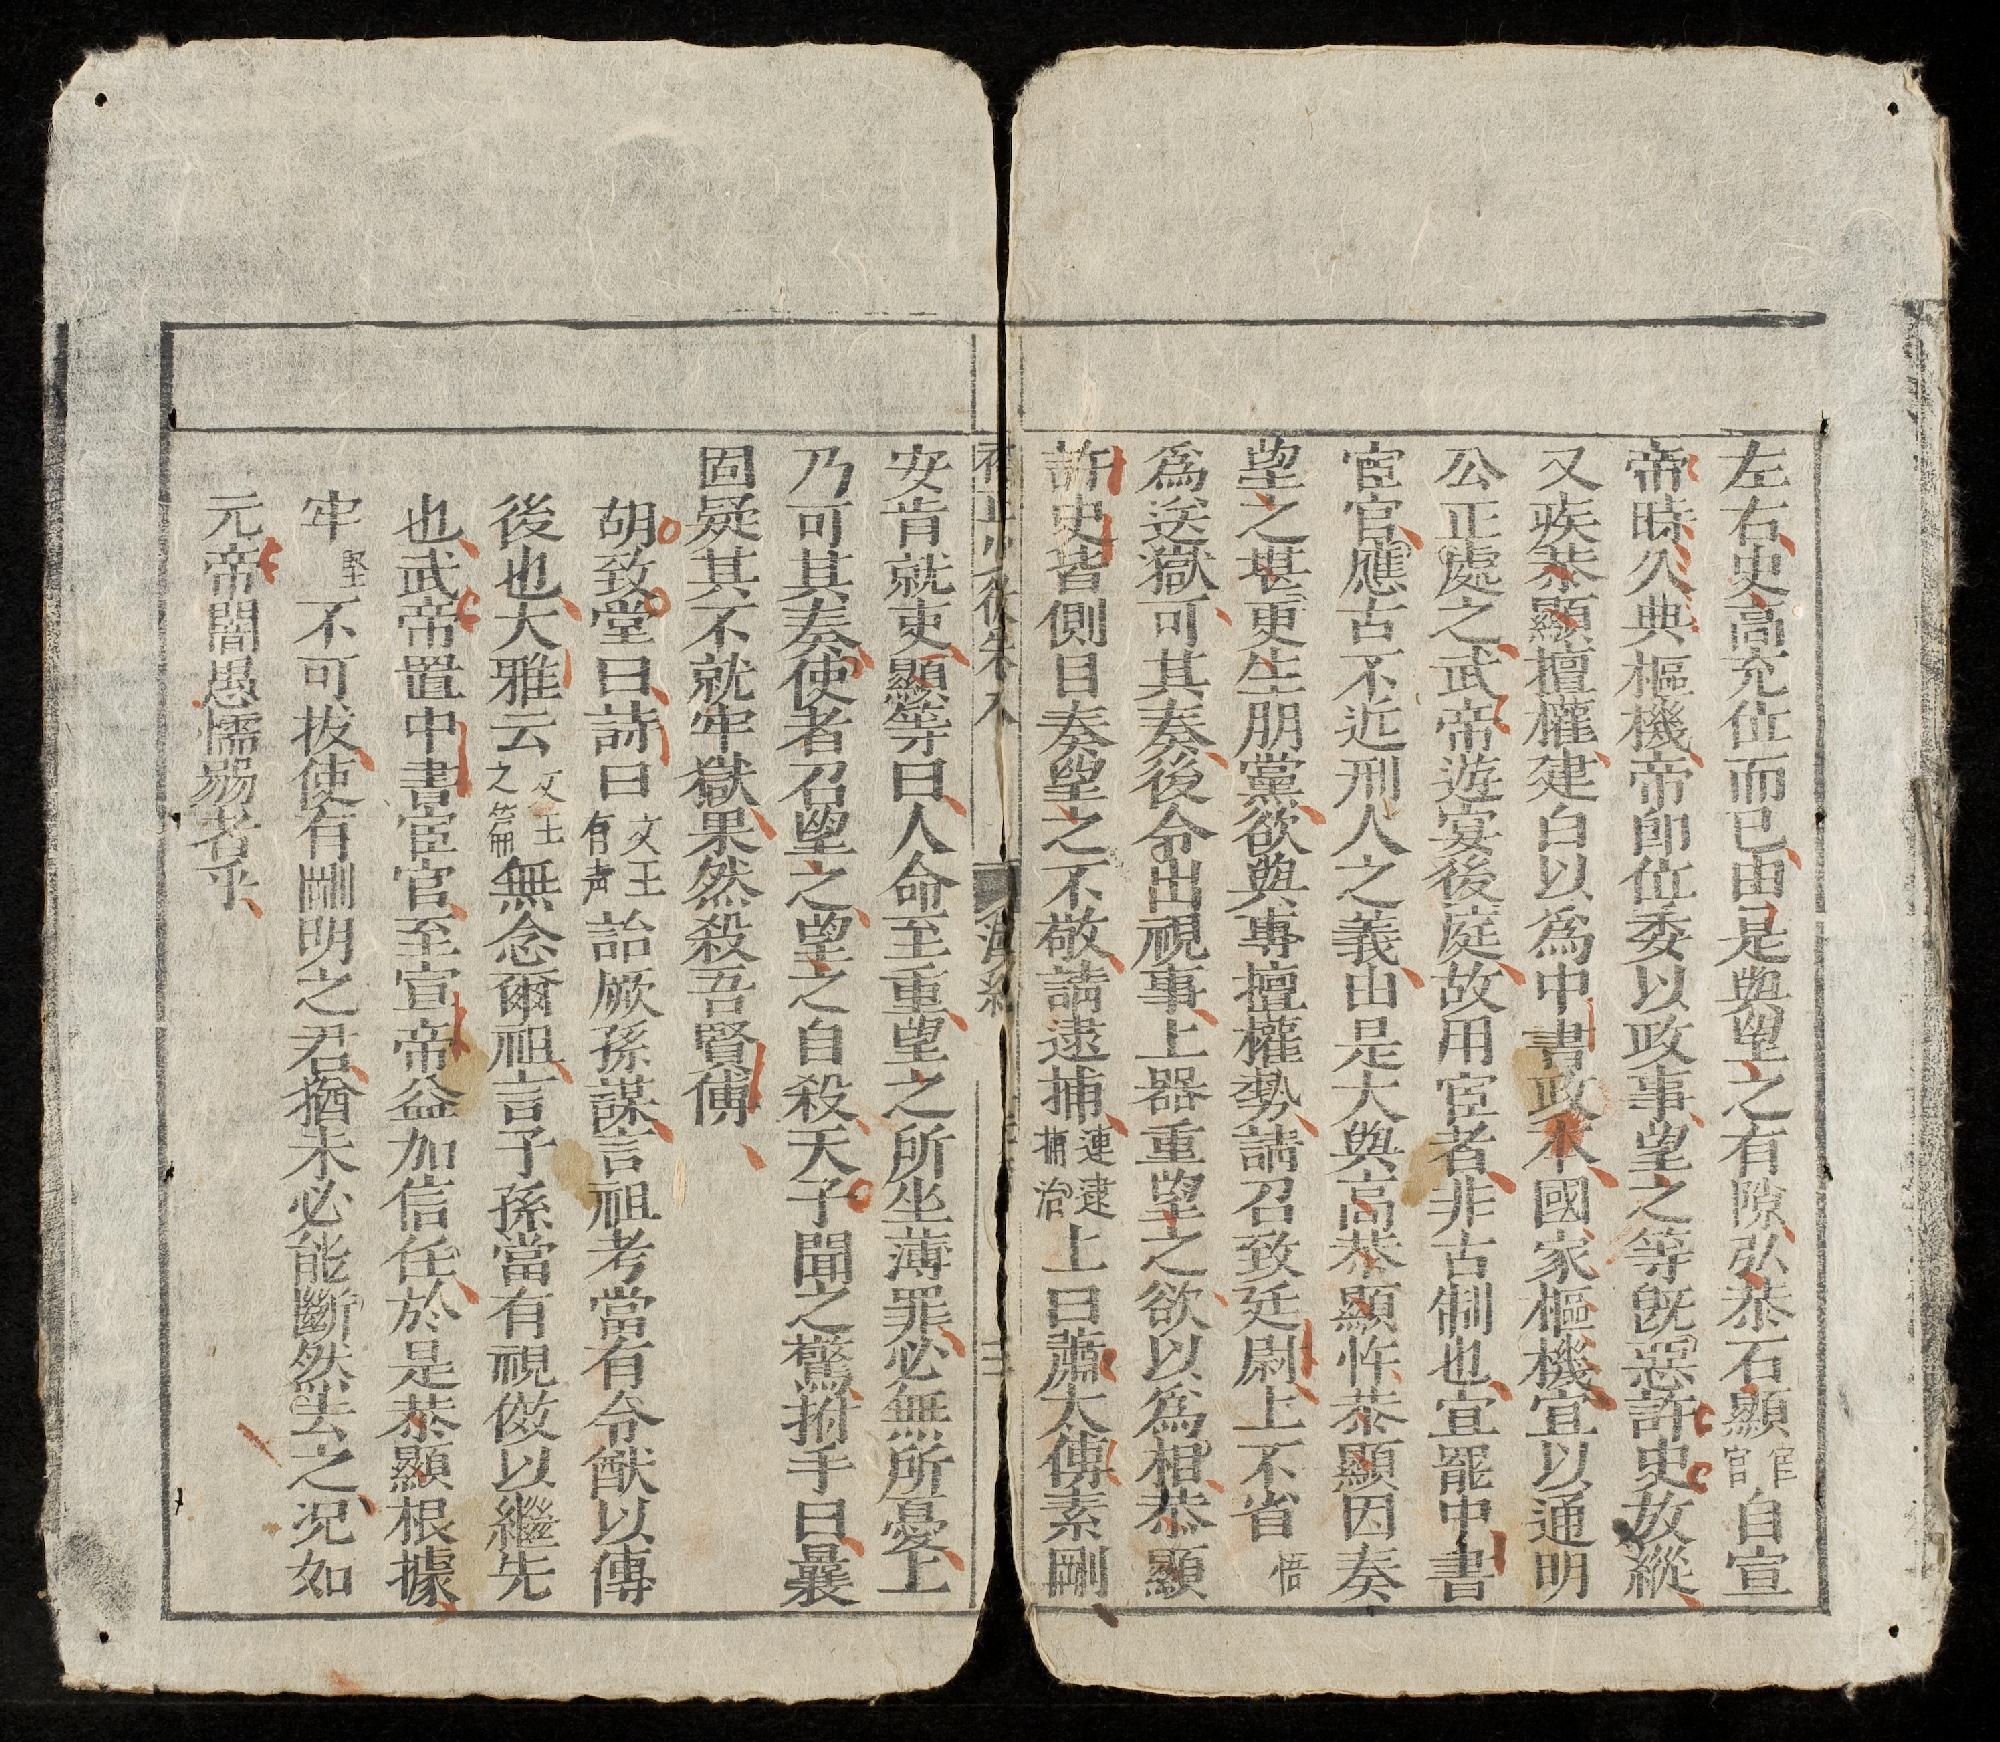 左右史高充位而已由是與望之有隙弘恭石顯宦官自宣
帝時久典樞機帝即位委以政事望之等既惡許史放縱
又疾恭顯擅權建白以為中書政本國家樞機宜以通明
公正處之武帝遊宴後庭故用宦者非古制也宜罷中書
宦官應古不近刑人之義由是大與高恭顯忤恭顯因奏
望之堪更生朋黨欲與專擅權勢請召致廷尉上不省悟
為送獄可其奏後令出視事上器重望之欲以為相恭顯
許史皆側目奏望之不敬請逮捕連逮捕治上曰蕭太傅素剛
安肯就吏顯等曰人命至重望之所坐薄罪必無所憂上
乃可其奏使者召望之望之自殺天子聞之驚拊手曰曩
固疑其不就牢獄果然殺吾賢傅
胡致堂曰詩曰文王有聲詒厥孫謀言祖考當有令猷以傳
後也大雅云文王之篇無念爾祖言子孫當有視傚以繼先
也武帝置中書宦官至宣帝益加信任於是恭顯根據
牢堅不可拔使有剛明之君猶未必能斷然去之況如
元帝闇愚懦弱者乎